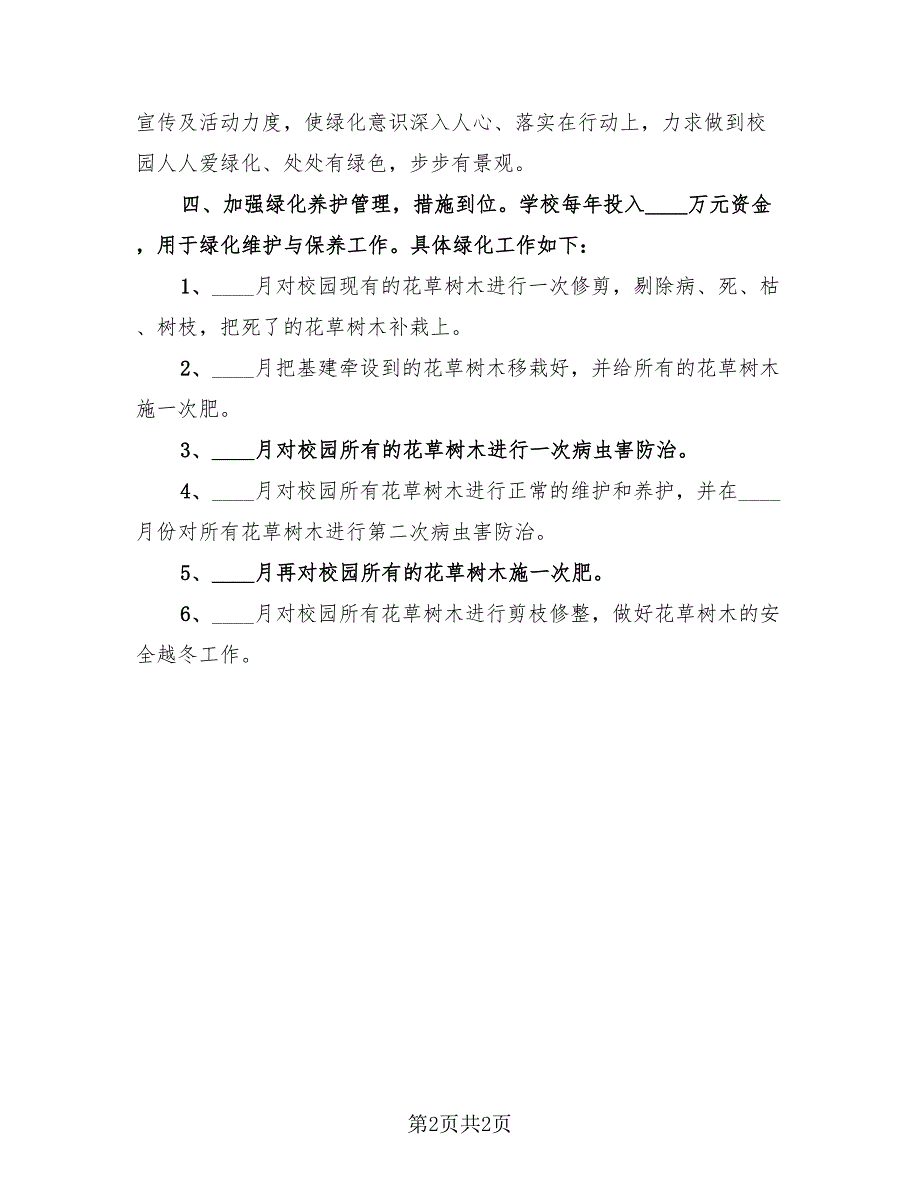 宣传及活动力度，使绿化意识深入人心、落实在行动上，力求做到校
园人人爱绿化、处处有绿色，步步有景观。
四、加强绿化养护管理，措施到位。学校每年投入____万元资金
，用于绿化维护与保养工作。具体绿化工作如下：
1、____月对校园现有的花草树木进行一次修剪，剔除病、死、枯
、树枝，把死了的花草树木补栽上。
2、____月把基建牵设到的花草树木移栽好，并给所有的花草树木
施一次肥。
3、____月对校园所有的花草树木进行一次病虫害防治。
4、____月对校园所有花草树木进行正常的维护和养护，并在____
月份对所有花草树木进行第二次病虫害防治。
5、____月再对校园所有的花草树木施一次肥。
6、____月对校园所有花草树木进行剪枝修整，做好花草树木的安
全越冬工作。
第2页共2页